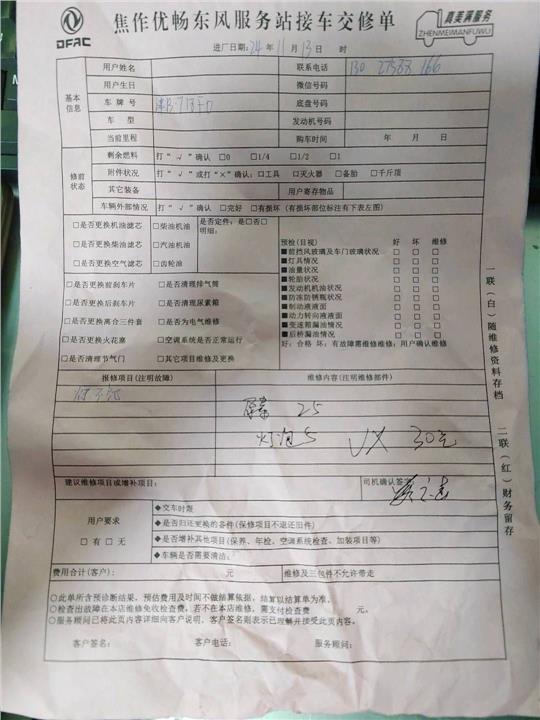 DFAC
焦作优畅东风服务站接车交修单
真美满服务
ZHENMEIMANFUWU
进厂日期:24年11月13日 时
基本信息
用户姓名 联系电话 166
用户生日 微信号码
车牌号 底盘号码
车型 发动机号码
当前里程 购车时间 年 月 日
修前状态
剩余燃料 打“√”确认 □0 □1/4 □1/2 □1
附件状况 打“√”或打“×”确认:□工具 □灭火器 □备胎 □千斤顶
其它装备 用户寄存物品
车辆外部情况 打“√”确认 □完好 □有损坏(有损坏部位标注有下表左图)
□是否更换机油滤芯 □柴油机油 是否定件:是□否□
明细:
□是否更换柴油滤芯 □汽油机油
□是否更换空气滤芯 □齿轮油
预检(目视) 好 坏 维修
■前挡风玻璃及车门玻璃状况 □ □ □
■灯具情况 □ □ □
■油量状况 □ □ □
■轮胎状况 □ □ □
■发动机机油状况 □ □ □
■防冻防锈瓶状况 □ □ □
■制动液液面 □ □ □
■动力转向液液面 □ □ □
■变速箱漏油情况 □ □ □
■后桥漏油情况 □ □ □
好:合格 坏:有故障需维修维修:用户确认维修
□是否更换前刹车片 □是否清理排气筒
□是否更换后刹车片 □是否清理尿素箱
□是否更换离合三件套 □是否为电气维修
□是否更换火花塞 □空调系统是否正常运行
□是否清理节气门 □其它项目维修及更换
报修项目(注明故障) 维修内容(注明维修部件)
灯不亮
25
灯泡5 30元
建议维修项目或增补项目: 司机确认签字
用户要求
□有□无
◆交车时限
◆是否归还更换的备件(保修项目不退还旧件)
◆是否增补其他项目(保养、年检、空调系统检查、加装项目等)
◆车辆是否需要清洁:
费用合计(客户): 元 维修及三包件不允许带走
○此单所含预诊断结果,预估费用及时间不做结算依据,结算以结算单为准。
○检查出故障在本店维修免收检查费,若不在本店维修,需支付检查费 元。
○服务顾问已将此页内容详细向客户说明,客户签名则表示已理解并接受此页内容。
客户签名: 客户电话: 服务顾问:
一联(白)随维修资料存档
二联(红)财务留存